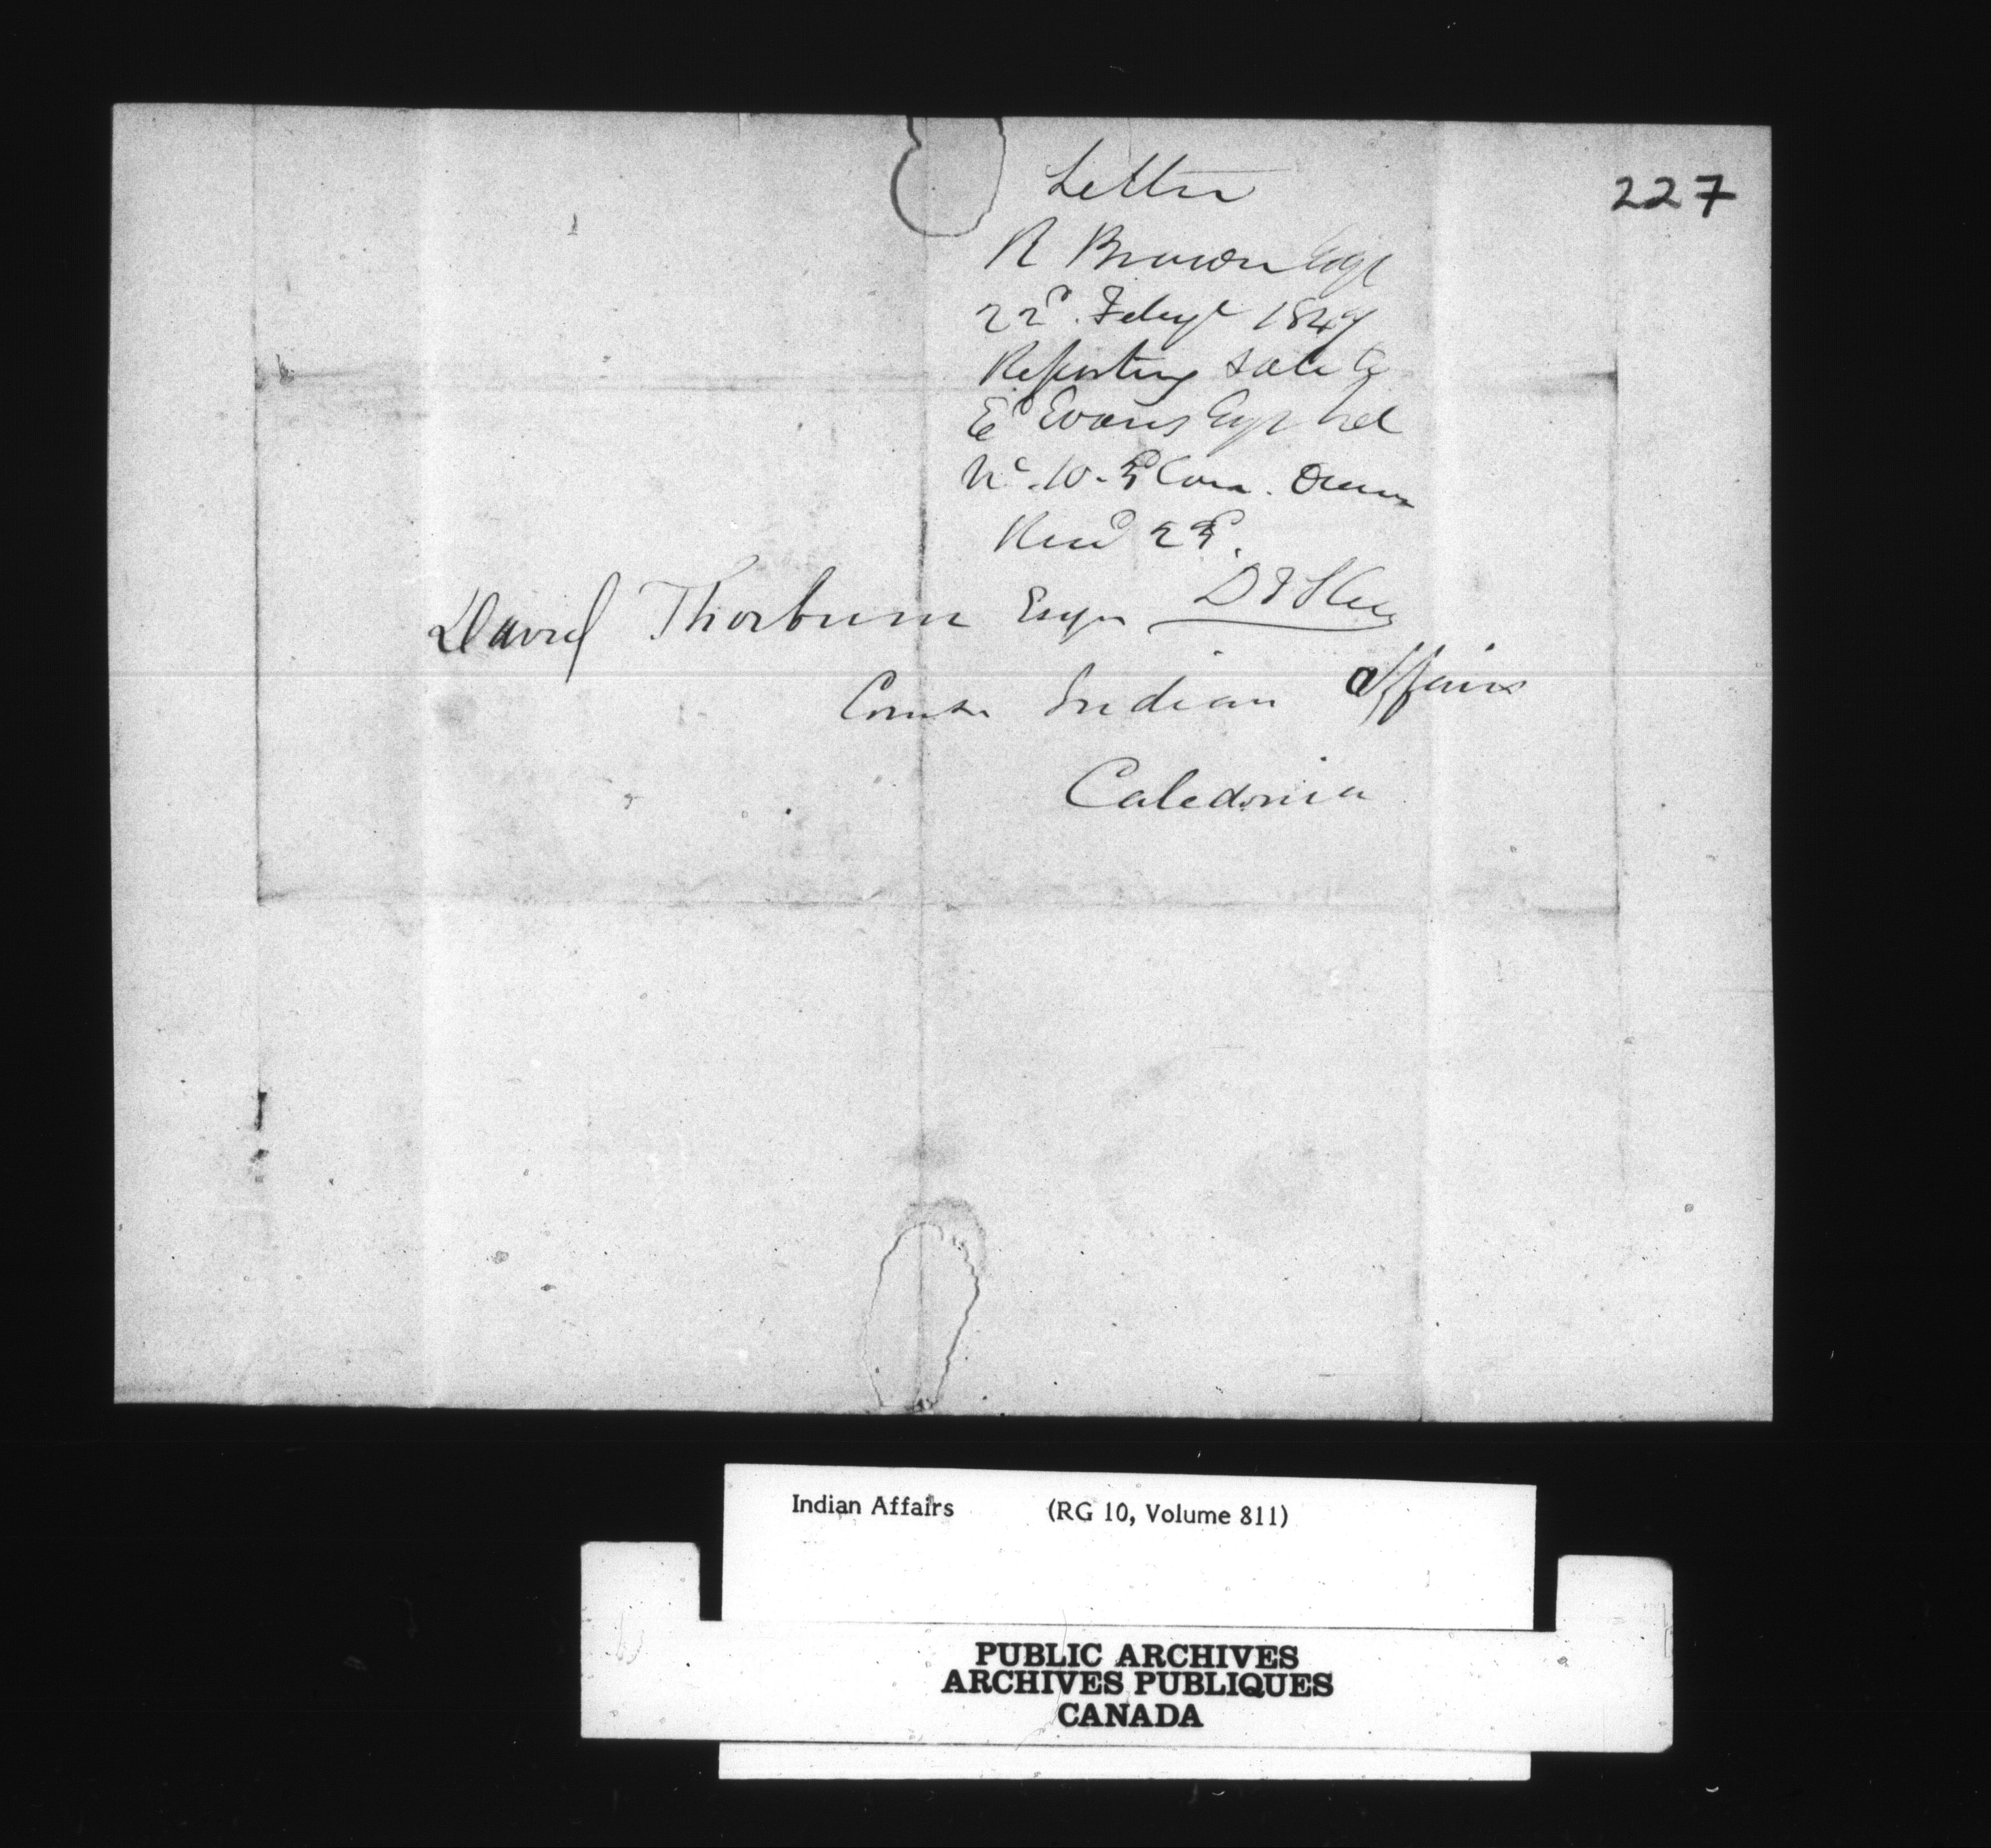 227
Letter
R Brown Esqr
22d. Feby 1847
Reporting sale to
Ed Evans Esqr
No. 10. 3d Con.
Recd 23d.
David Thorburn Esqr
Comsr Indian Affairs
Caledonia
Indian Affairs (RG 10, Volume 811)
PUBLIC ARCHIVES
ARCHIVES PUBLIQUES
CANADA